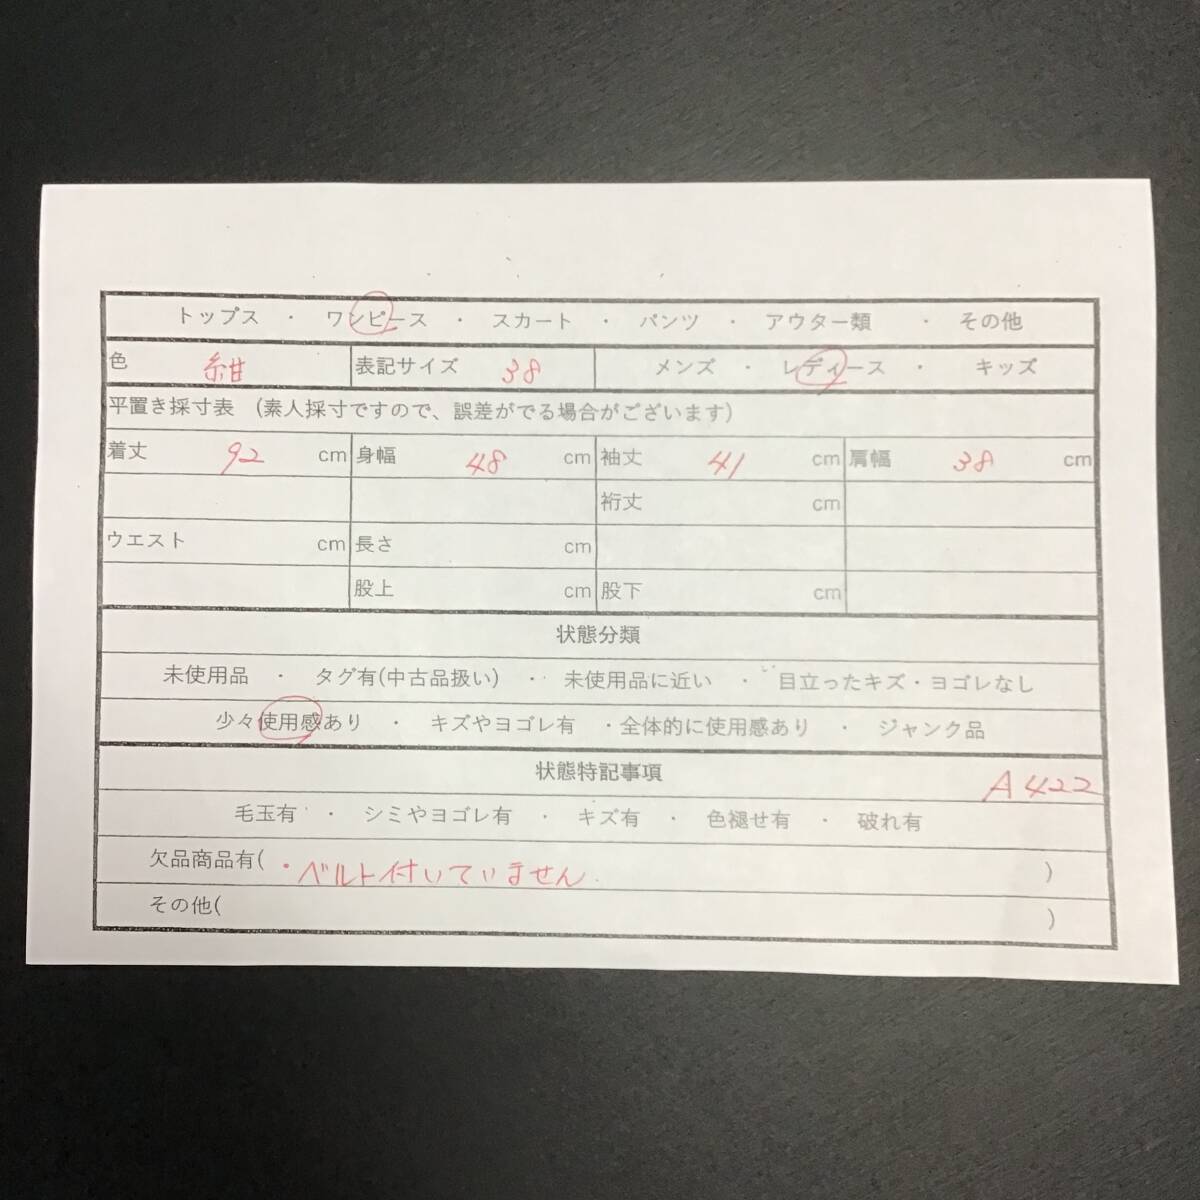 トップス ・ ワンピース ・ スカート ・ パンツ ・ アウター類 ・ その他
色 紺 表記サイズ 38 メンズ ・ レディース ・ キッズ
平置き採寸表 (素人採寸ですので、誤差がでる場合がございます)
着丈 92 cm 身幅 48 cm 袖丈 41 cm 肩幅 38 cm
裄丈 cm
ウエスト cm 長さ cm
股上 cm 股下 cm
状態分類
未使用品 ・ タグ有(中古品扱い) ・ 未使用品に近い ・ 目立ったキズ・ヨゴレなし
少々使用感あり ・ キズやヨゴレ有 ・全体的に使用感あり ・ ジャンク品
状態特記事項 A422
毛玉有 ・ シミやヨゴレ有 ・ キズ有 ・ 色褪せ有 ・ 破れ有
欠品商品有( ・ベルト付いていません. )
その他( )